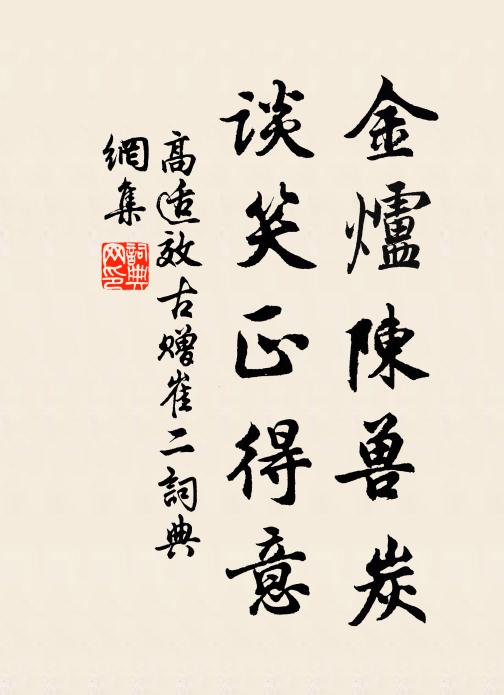 金爐陳兽炭
谈笑正得意
高适效古赠崔二詞典
網集
詞典
网印